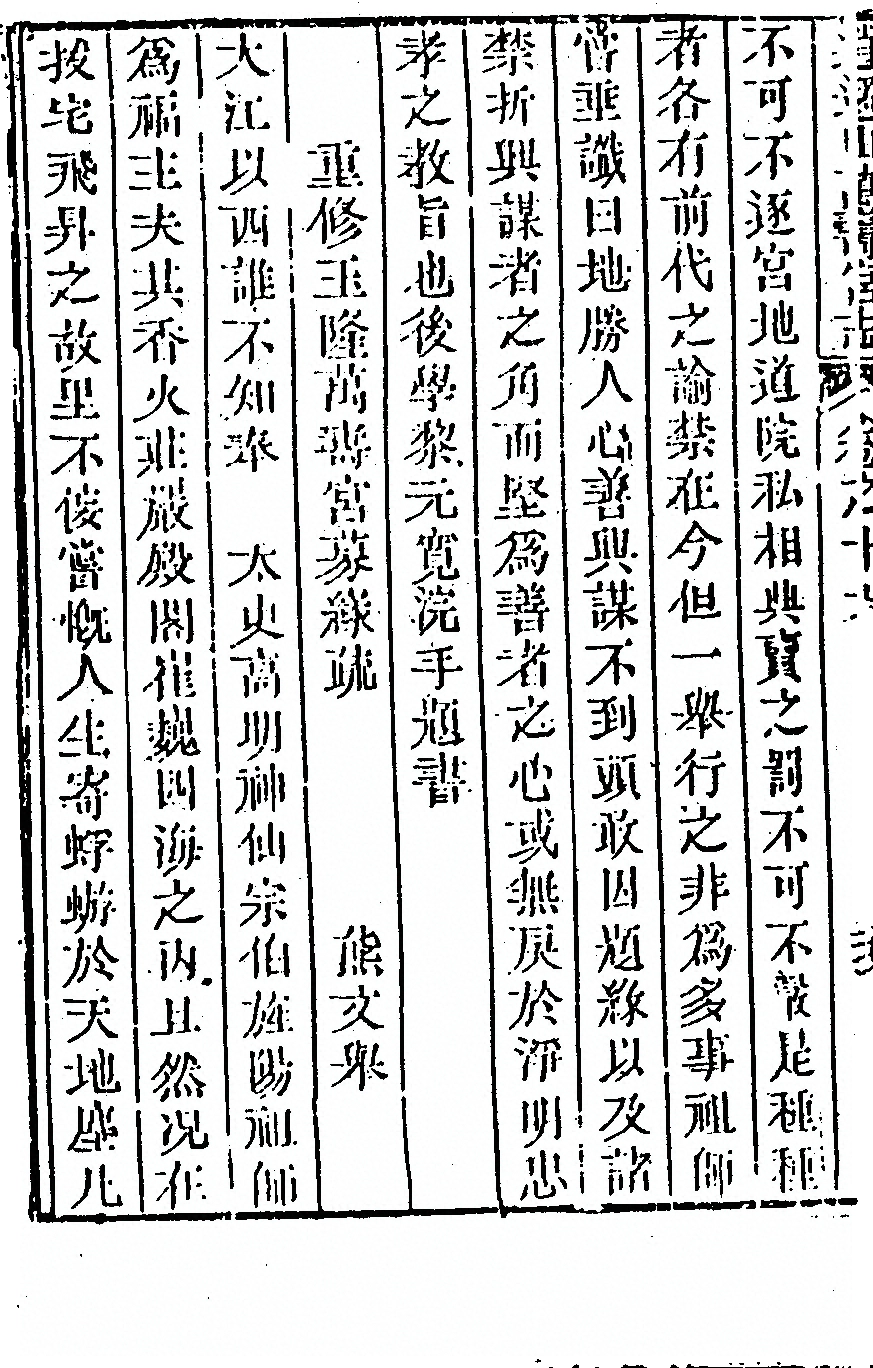 不可不逐宮地道院私相典賣之罰不可不嚴是種種
者各有前代之諭禁在今但一舉行之非為多事祖師
嘗垂讖曰地勝人心善興謀不到頭敢因題緣以及諸
禁折興謀者之角而堅為善者之心或無戾於淨明忠
孝之教旨也後學黎元寬浣手題書
重修玉隆萬壽宮募緣疏 熊文舉
大江以西誰不知奉 太史高明神仙宗伯旌陽祖師
為福主夫其香火莊嚴殿閣崔巍四海之內且然況在
拔宅飛昇之故里不佞嘗慨人生寄蜉蝣於天地塵凡